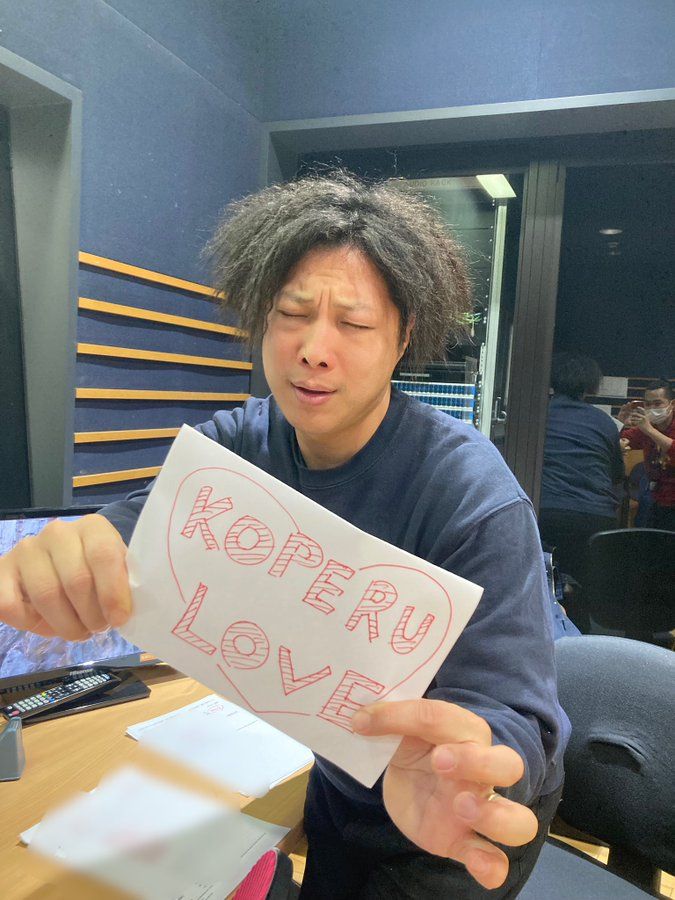 KOPERU
LOVE